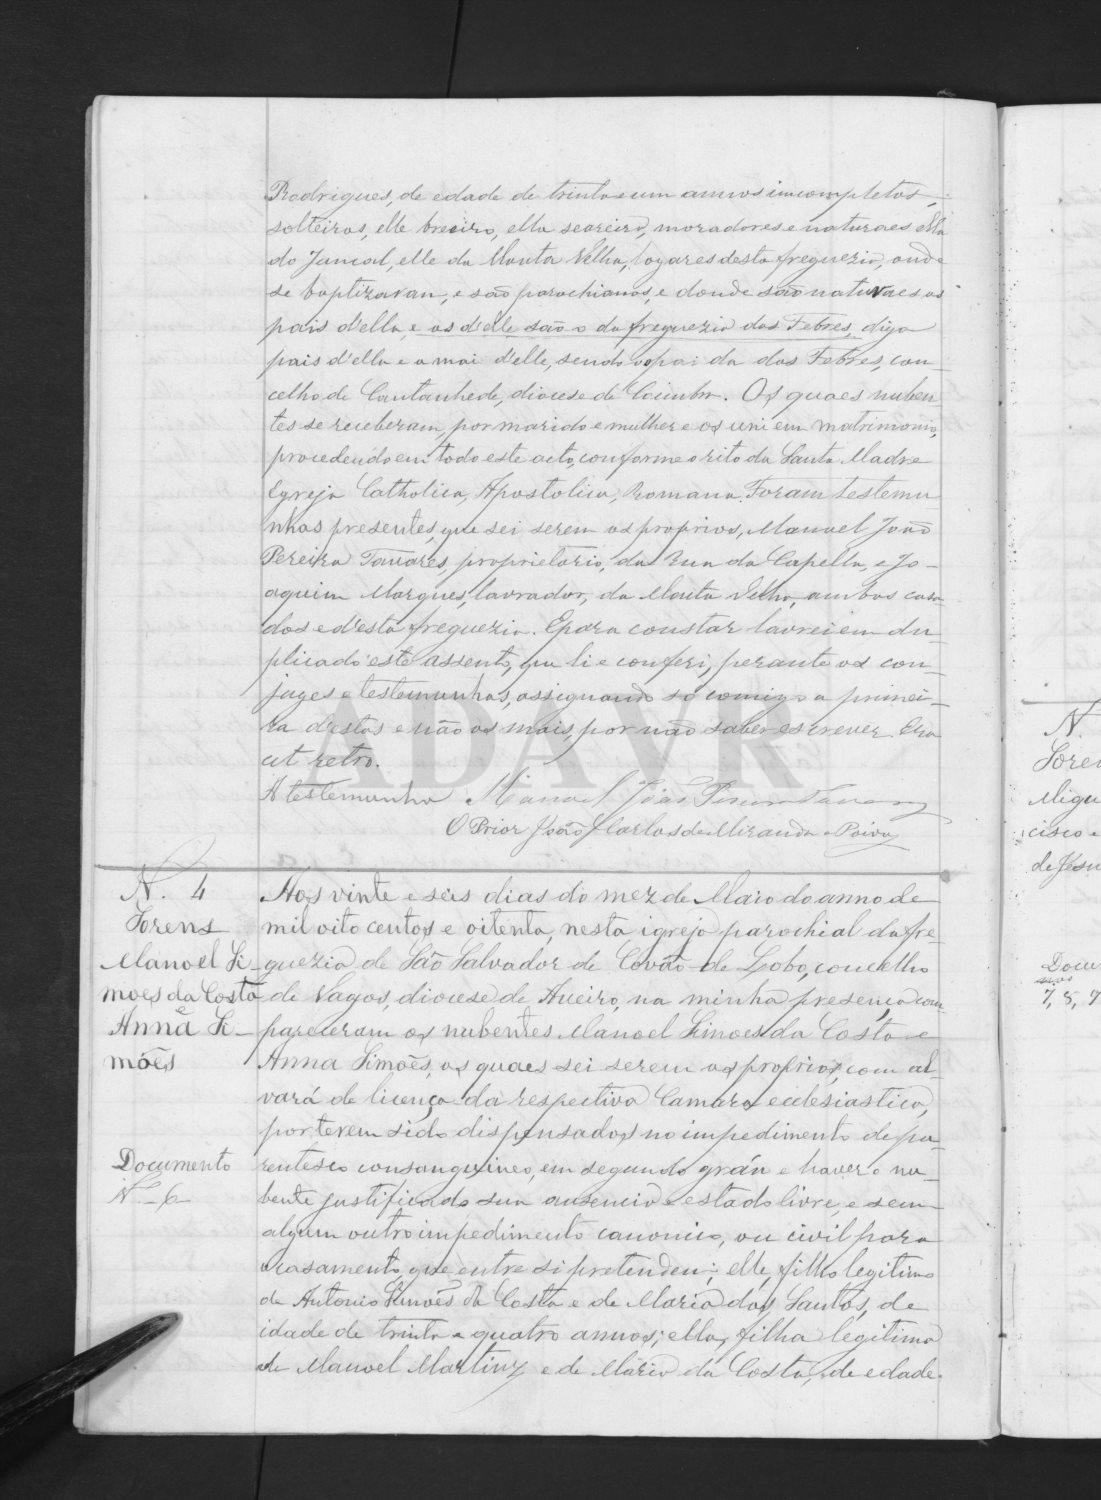 Rodrigues, de edade de trinta e um annos incompletos,
solteiros, elle breeiro, ella seareira, moradores e naturaes ella
do Juncal, elle da Mouta Velha, logares desta freguezia, onde
se baptizaram, e são parochianos, e donde são naturaes os
pais d'ella, e os d'elle são o da freguezia dos Febres, digo
pais d'ella e a mai d'elle, sendo o pai da dos Febres, con-
celho de Cantanhede, diocese de Coimbra. Os quaes nuben-
tes se receberam, por marido e mulher e os uni em matrimonio,
procedendo em todo este acto, conforme o rito da Santa Madre
Egreja Catholica, Apostolica, Romana. Foram testemu
nhas presentes, que sei serem os proprios, Manoel João
Pereira Tavares, proprietario, da Rua da Capella, e Jo-
aquim Marques, lavrador, da Mouta Velha, ambos casa-
dos e d'esta freguezia. E para constar lavrei em du-
plicado este assento, que li e conferi, perante os con-
juges e testemunhas, assignando só comigo a primei-
ra d'estas e não os mais, por não saber escrever. Era
ut retro.
A testemunha Manoel João Pereira Tavares
O Prior João Carlos de Miranda e Paiva
N. 4
Sorens
Manoel Si-
moes da Costa
e
Anna Si-
mões
Documento
Nº 6
Aos vinte e seis dias do mez de Maio do anno de
mil oito centos e oitenta, nesta igreja parochial da fre-
guezia de São Salvador de Covão de Lobo, concelho
de Vagos, diocese de Aveiro, na minha presença com
pareceram os nubentes Manoel Simoes da Costa e
Anna Simões, os quaes sei serem os proprios, com al-
vará de licença da respectiva Camara ecclesiastica,
por terem sido dispensados no impedimento de pa-
rentesco consanguineo, em segundo gráu e haver o nu-
bente justificado sua ausencia e estado livre, e sem
algum outro impedimento canonico, ou civil para
o casamento, que entre si pretendem; elle, filho legitimo
de Antonio Simoes da Costa e de Maria dos Santos, de
idade de trinta e quatro annos; ella, filha legitima
de Manoel Martins e de Maria da Costa, de edade
N.
Soren
Migu
cisco e
de Jesu
Docu
7, 8, 9
ADAVR